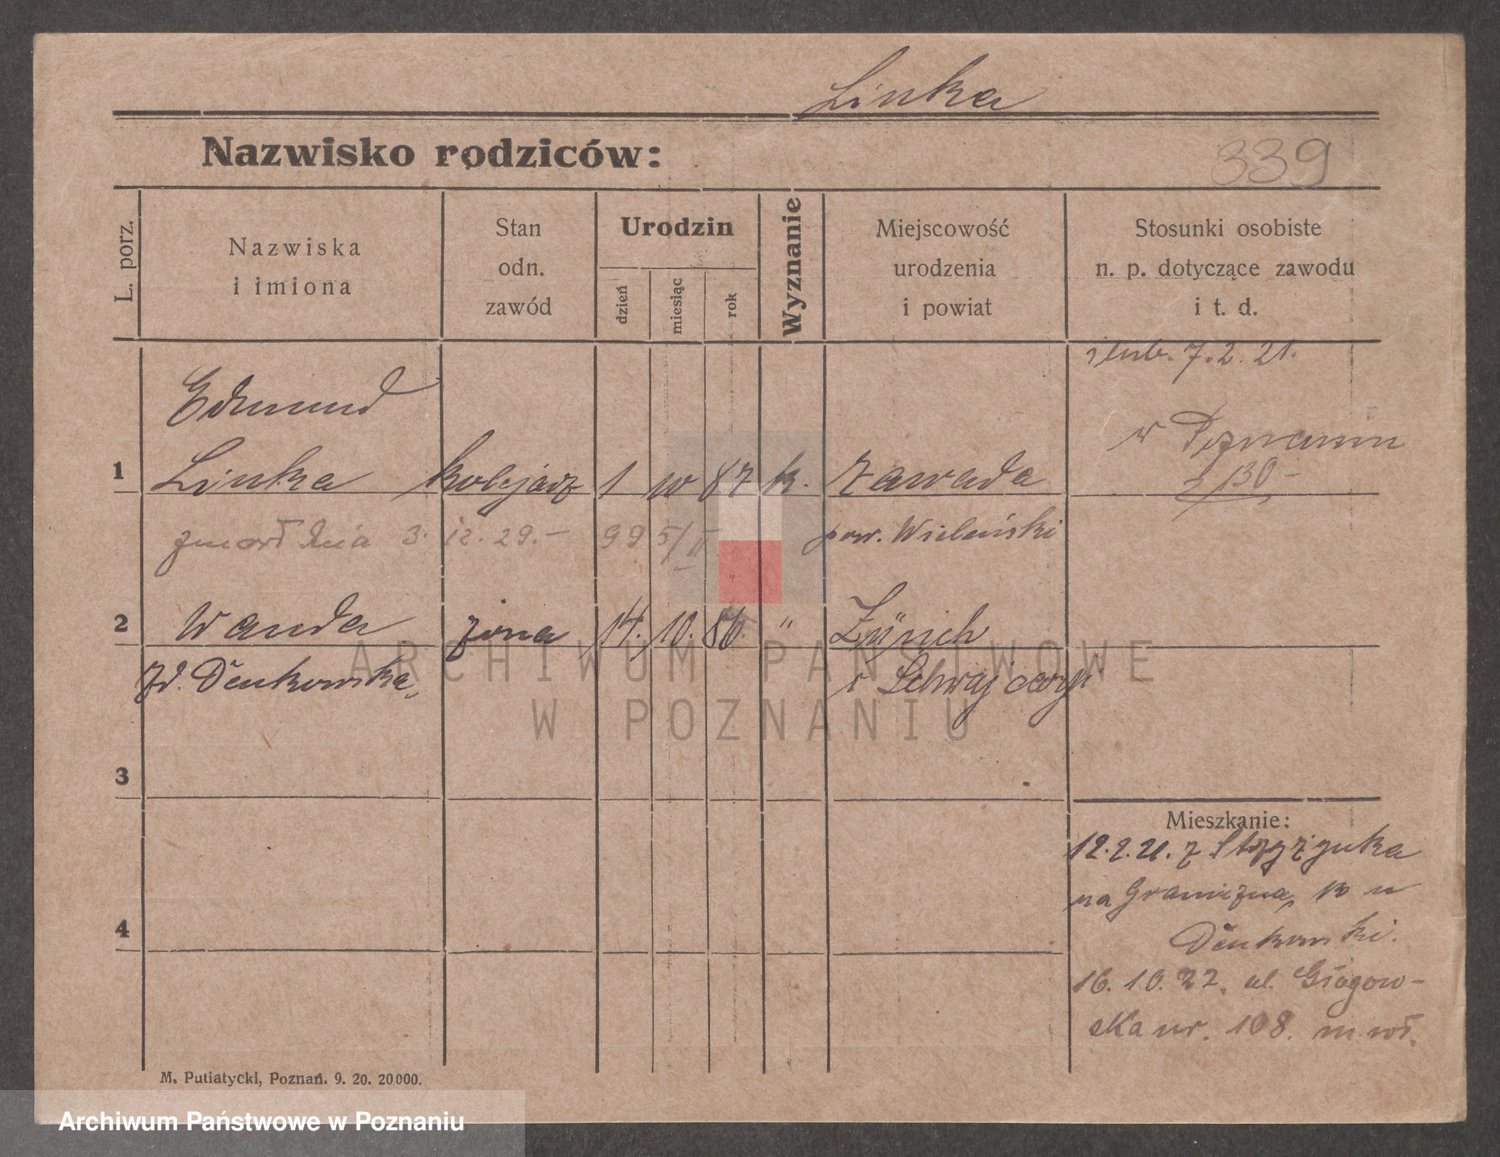 Linka
Nazwisko rodziców:
339
L. porz.
Nazwiska
i imiona
Stan
odn.
zawód
Urodzin
dzień
miesiąc
rok
Wyznanie
Miejscowość
urodzenia
i powiat
Stosunki osobiste
n. p. dotyczące zawodu
i t. d.
ślub. 7.2.21.
Edmund
w Poznaniu
130-
1 Linka kolejarz 1 87 k. Zawada
zmarł dnia 3. 12. 29.- 99 5/II pow. Wieleński
2 Wanda żona 14. 10. 86. " Zürich
zd. Denkowska w Schwajcarji
3
4
Mieszkanie:
12.2.21. z
na Graniczną u
Denkowski.
16.10.22. ul. Głogow-
ska nr. 108. m. wł.
M. Putiatycki, Poznań. 9. 20. 20000.
ARCHIWUM PAŃSTWOWE
W POZNANIU
Archiwum Państwowe w Poznaniu